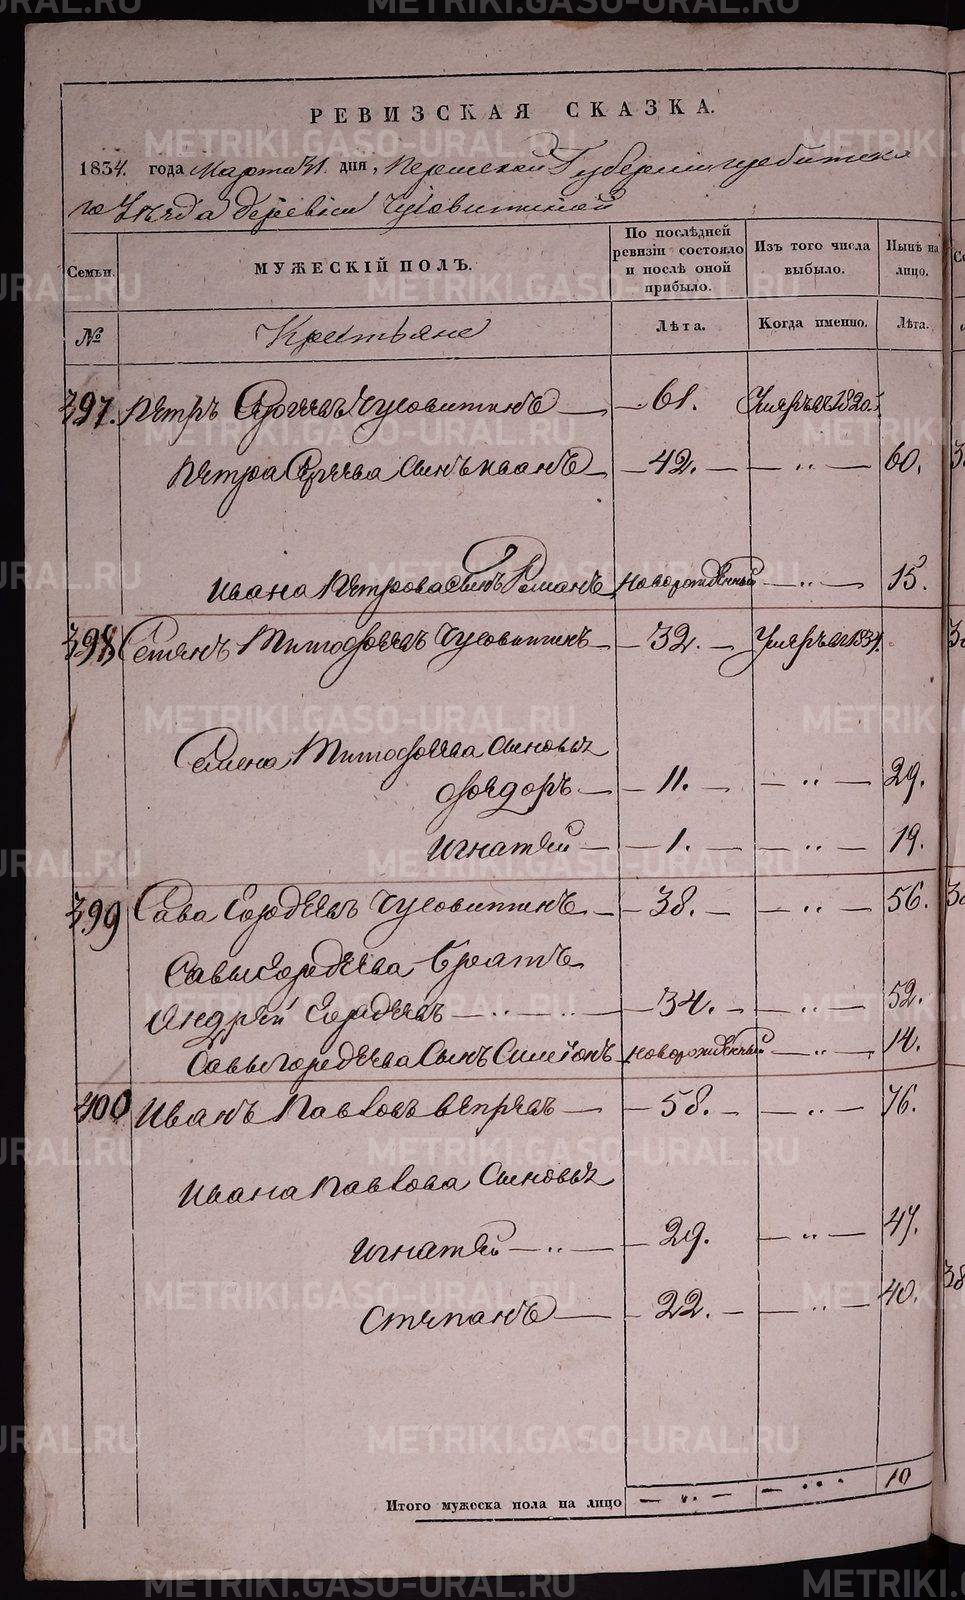 РЕВИЗСКАЯ СКАЗКА.
1834. года Марта 31. дня, Пермской Губернии, Ирбитска
го Уезда деревни Чусовитиной
Семьи.
МУЖЕСКІЙ ПОЛЪ.
По послѣдней ревизіи состояло и послѣ оной прибыло.
Изъ того числа выбыло.
Нынѣ на лицо.
№
Крестьяне
Лѣта.
Когда именно.
Лѣта.
397. Петръ Сергѣевъ Чусовитинъ — 61. Умеръ въ 1820.
Петра Сергѣева сынъ Иванъ — 42. — „ — 60.
Ивана Петрова сынъ Романъ новорожденный — „ — 15.
398 Семенъ Тимофѣевъ Чусовитинъ — 32. — Умеръ въ 1831.
Семена Тимофѣева сыновья
Федоръ — 11. — „ — 29.
Игнатей — 1. — „ — 19.
399 Сава Гордѣевъ Чусовитинъ — 38. — „ — 56.
Савы Гордѣева братъ
Андрей Гордѣевъ — „ — 34. — „ — 52.
Савы Гордѣева сынъ Симіонъ новорожденный — „ — 14.
400 Иванъ Павловъ Вепревъ — 58. — „ — 76.
Ивана Павлова сыновья
Игнатей — „ — 29. — „ — 47.
Степанъ — 22. — „ — 40.
Итого мужеска пола на лицо — „ — — „ — 10
METRIKI.GASO-URAL.RU